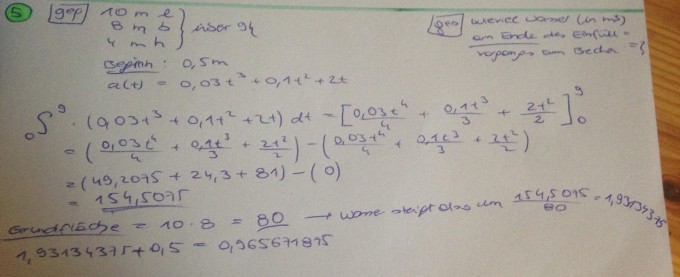 5 geg 10 m l
8 m b } über 9h
4 m h
ges Wieviel Wasser (in m³)
am Ende des Einfüll-
vorganges im Becken = ?
Beginn: 0,5m
a(t) = 0,03t³ + 0,1t² + 2t
₀∫⁹ · (0,03t³ + 0,1t² + 2t) dt = [0,03t⁴/4 + 0,1t³/3 + 2t²/2]₀⁹
= (0,03t⁴/4 + 0,1t³/3 + 2t²/2) - (0,03t⁴/4 + 0,1t³/3 + 2t²/2)
= (49,2075 + 24,3 + 81) - (0)
= 154,5075
Grundfläche = 10 · 8 = 80 → Wasser steigt also um 154,5075/80 = 1,93134375
1,93134375 + 0,5 = 0,965671875